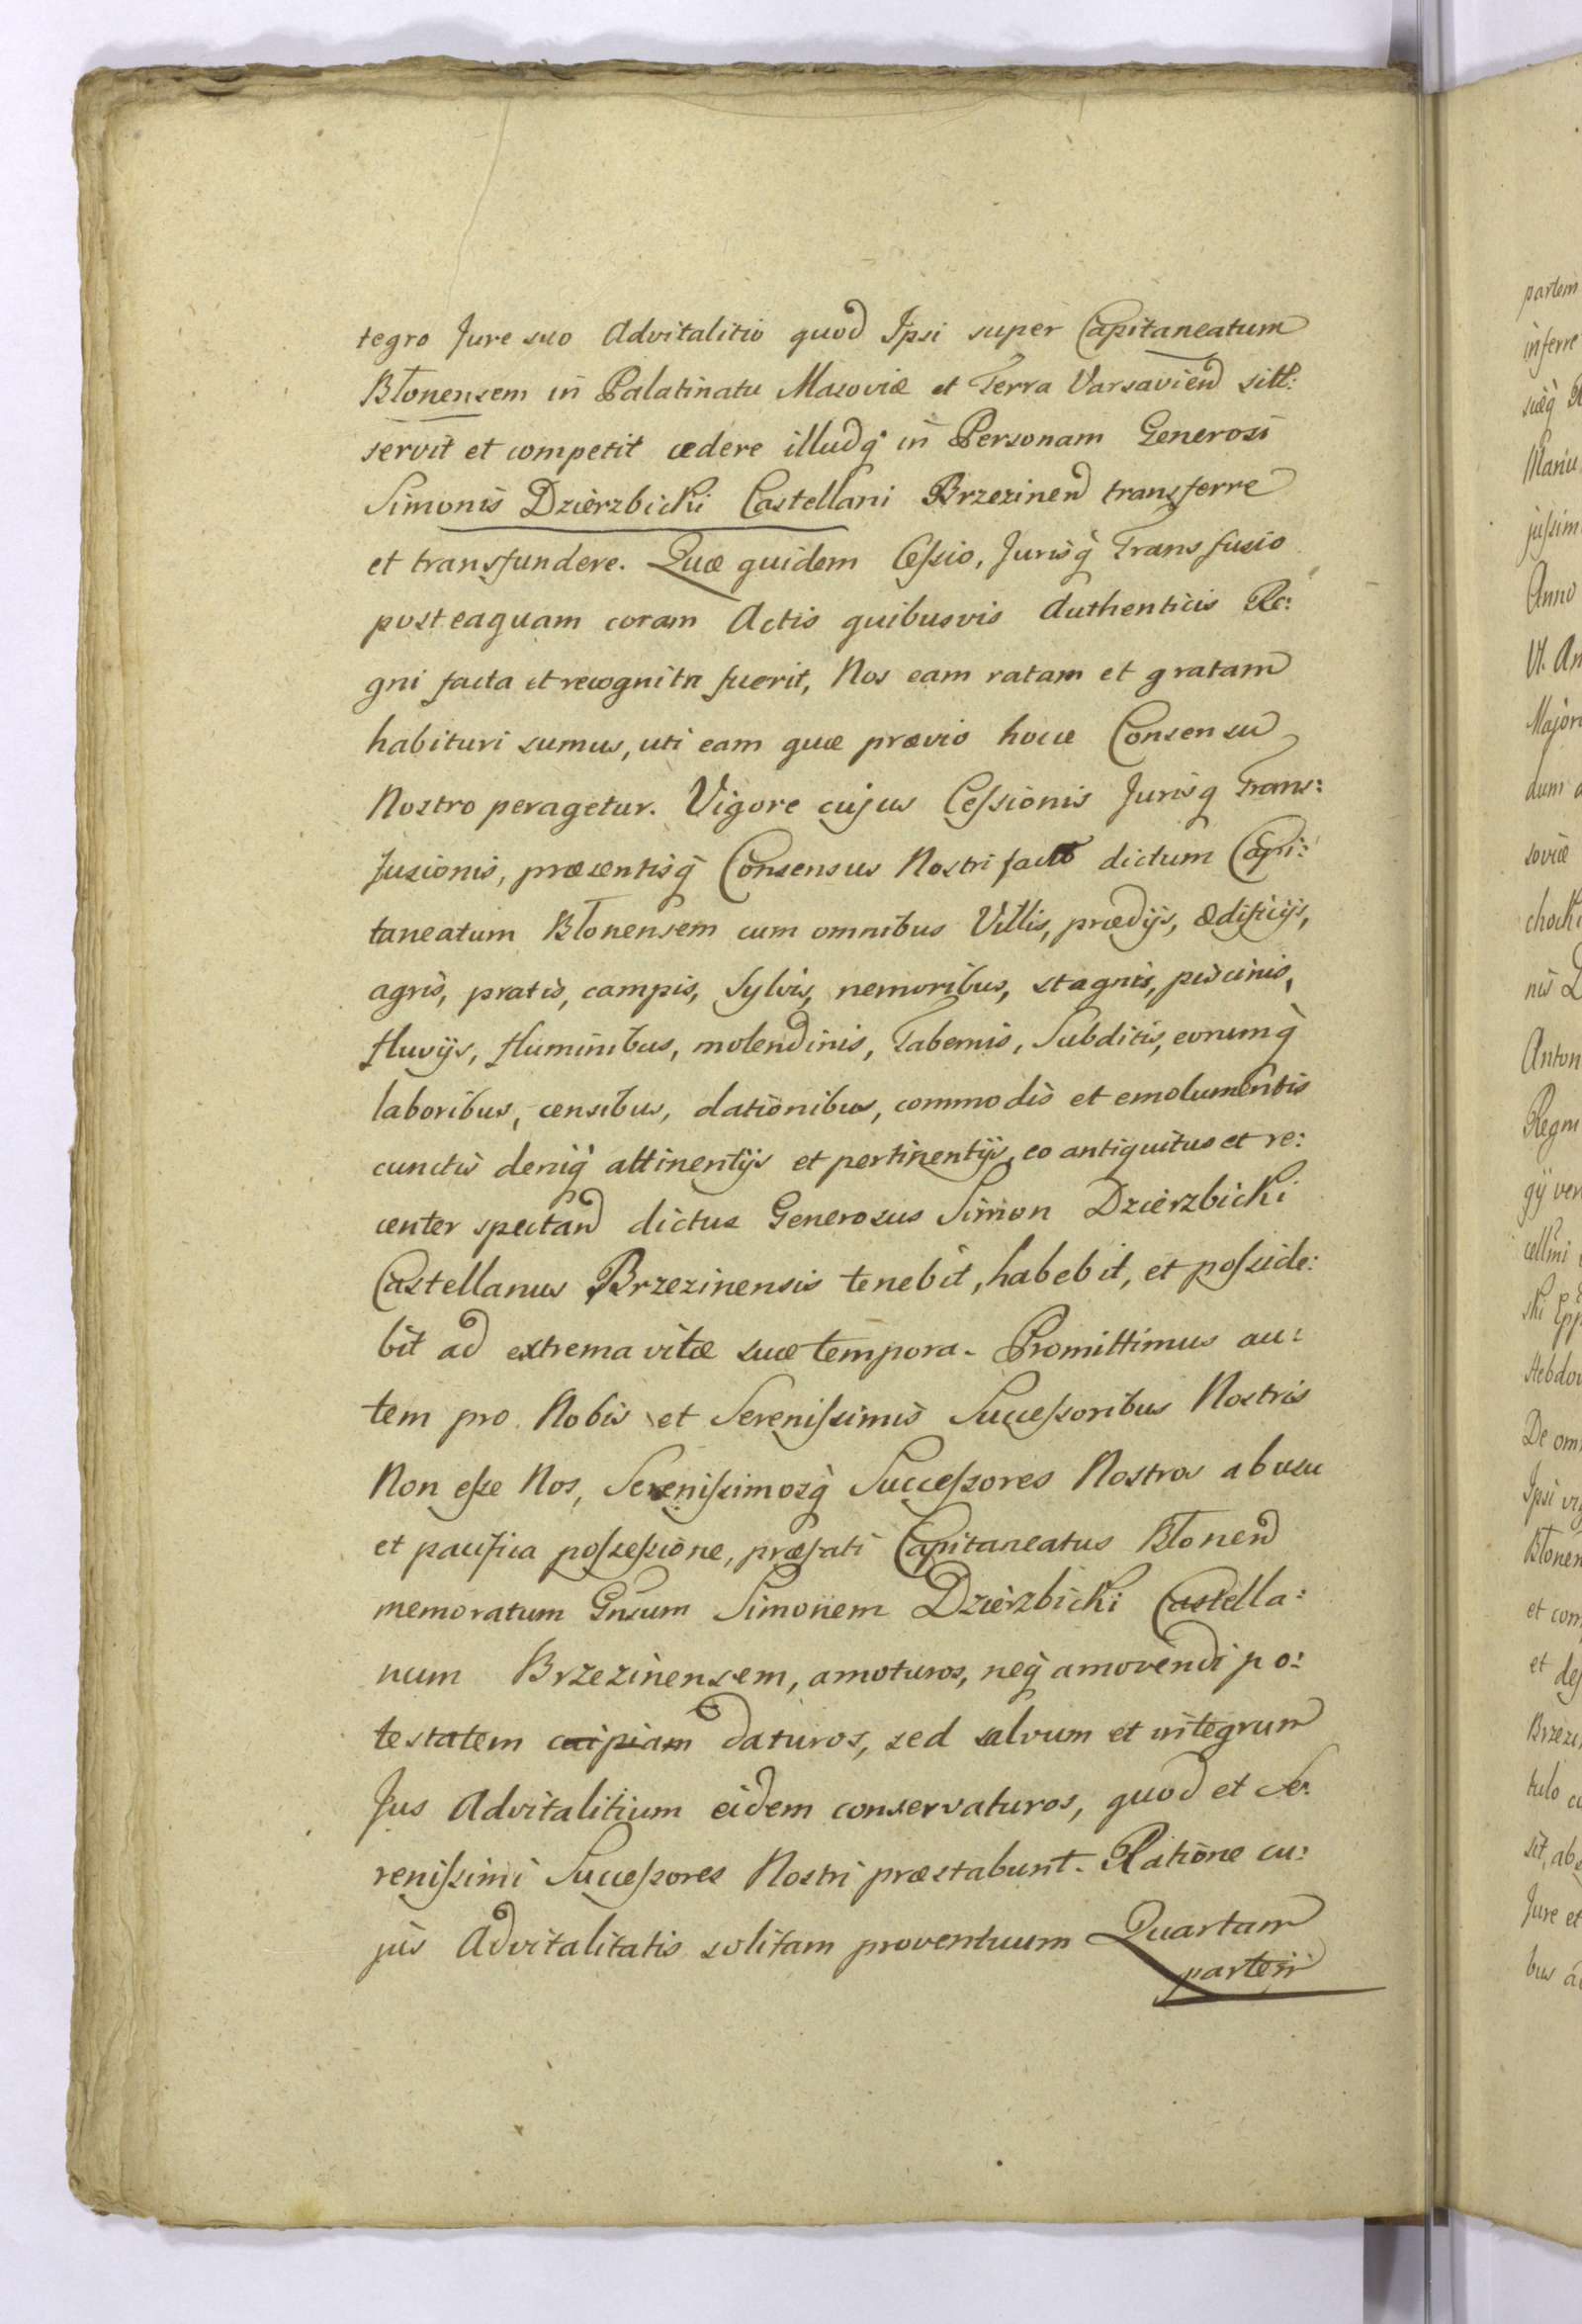 tegro Jure suo Advitalitio quod Ipsi super Capitaneatum
Błonensem in Palatinatu Masoviæ et Terra Varsavien sitt:
servit et competit cedere illudq in Personam Generosi
Simonis Dzierzbicki Castellani Brzezinen transferre
et transfundere. Quæ quidem Cessio, Jurisq Transfusio
posteaquam coram Actis quibusvis Authenticis Re:
gni facta et recognita fuerit, Nos eam ratam et gratam
habituri sumus, uti eam quæ prævio hocce Consensu
Nostro peragetur. Vigore cujus Cessionis Jurisq Trans:
fusionis, præsentisq Consensus Nostri facto dictum Capi:
taneatum Błonensem cum omnibus Villis, prædijs, ædificijs,
agris, pratis, campis, Sylvis, nemoribus, stagnis, piscinis,
fluvijs, fluminibus, molendinis, Tabernis, Subditis, eorumq
laboribus, censibus, dationibus, commodis et emolumentis
cunctis deniq attinentijs et pertinentijs, eo antiquitus et re:
center spectan dictus Generosus Simon Dzierzbicki
Castellanus Brzezinensis tenebit, habebit, et posside:
bit ad extrema vitæ suæ tempora. Promittimus au:
tem pro Nobis et Serenissimis Successoribus Nostris
Non esse Nos, Serenissimosq Successores Nostros ab usu
et pacifica possessione, præfati Capitaneatus Błonen
memoratum Gnsum Simonem Dzierzbicki Castella:
num Brzezinensem, amoturos, neq amovendi po:
testatem cuipiam daturos, sed salvum et integrum
Jus Advitalitium eidem conservaturos, quod et Se:
renissimi Successores Nostri præstabunt. Ratione cu:
jus Advitalitatis solitam proventuum Quartam
partem
partem
inferre
suæq
jussim
Anno
Major
dum
soviæ
Anton
Regni
Błonen
et com
et
Jure et
bus